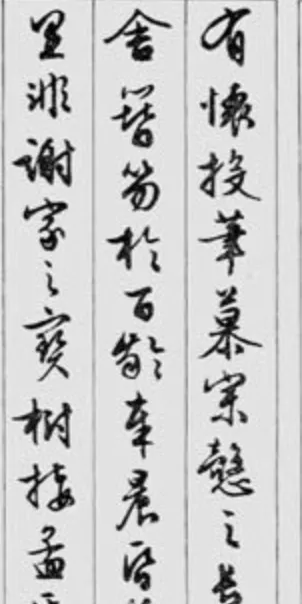 有懷投筆慕宗慤之長
舍簪笏於百齡奉晨昏
里非謝家之寶樹接孟